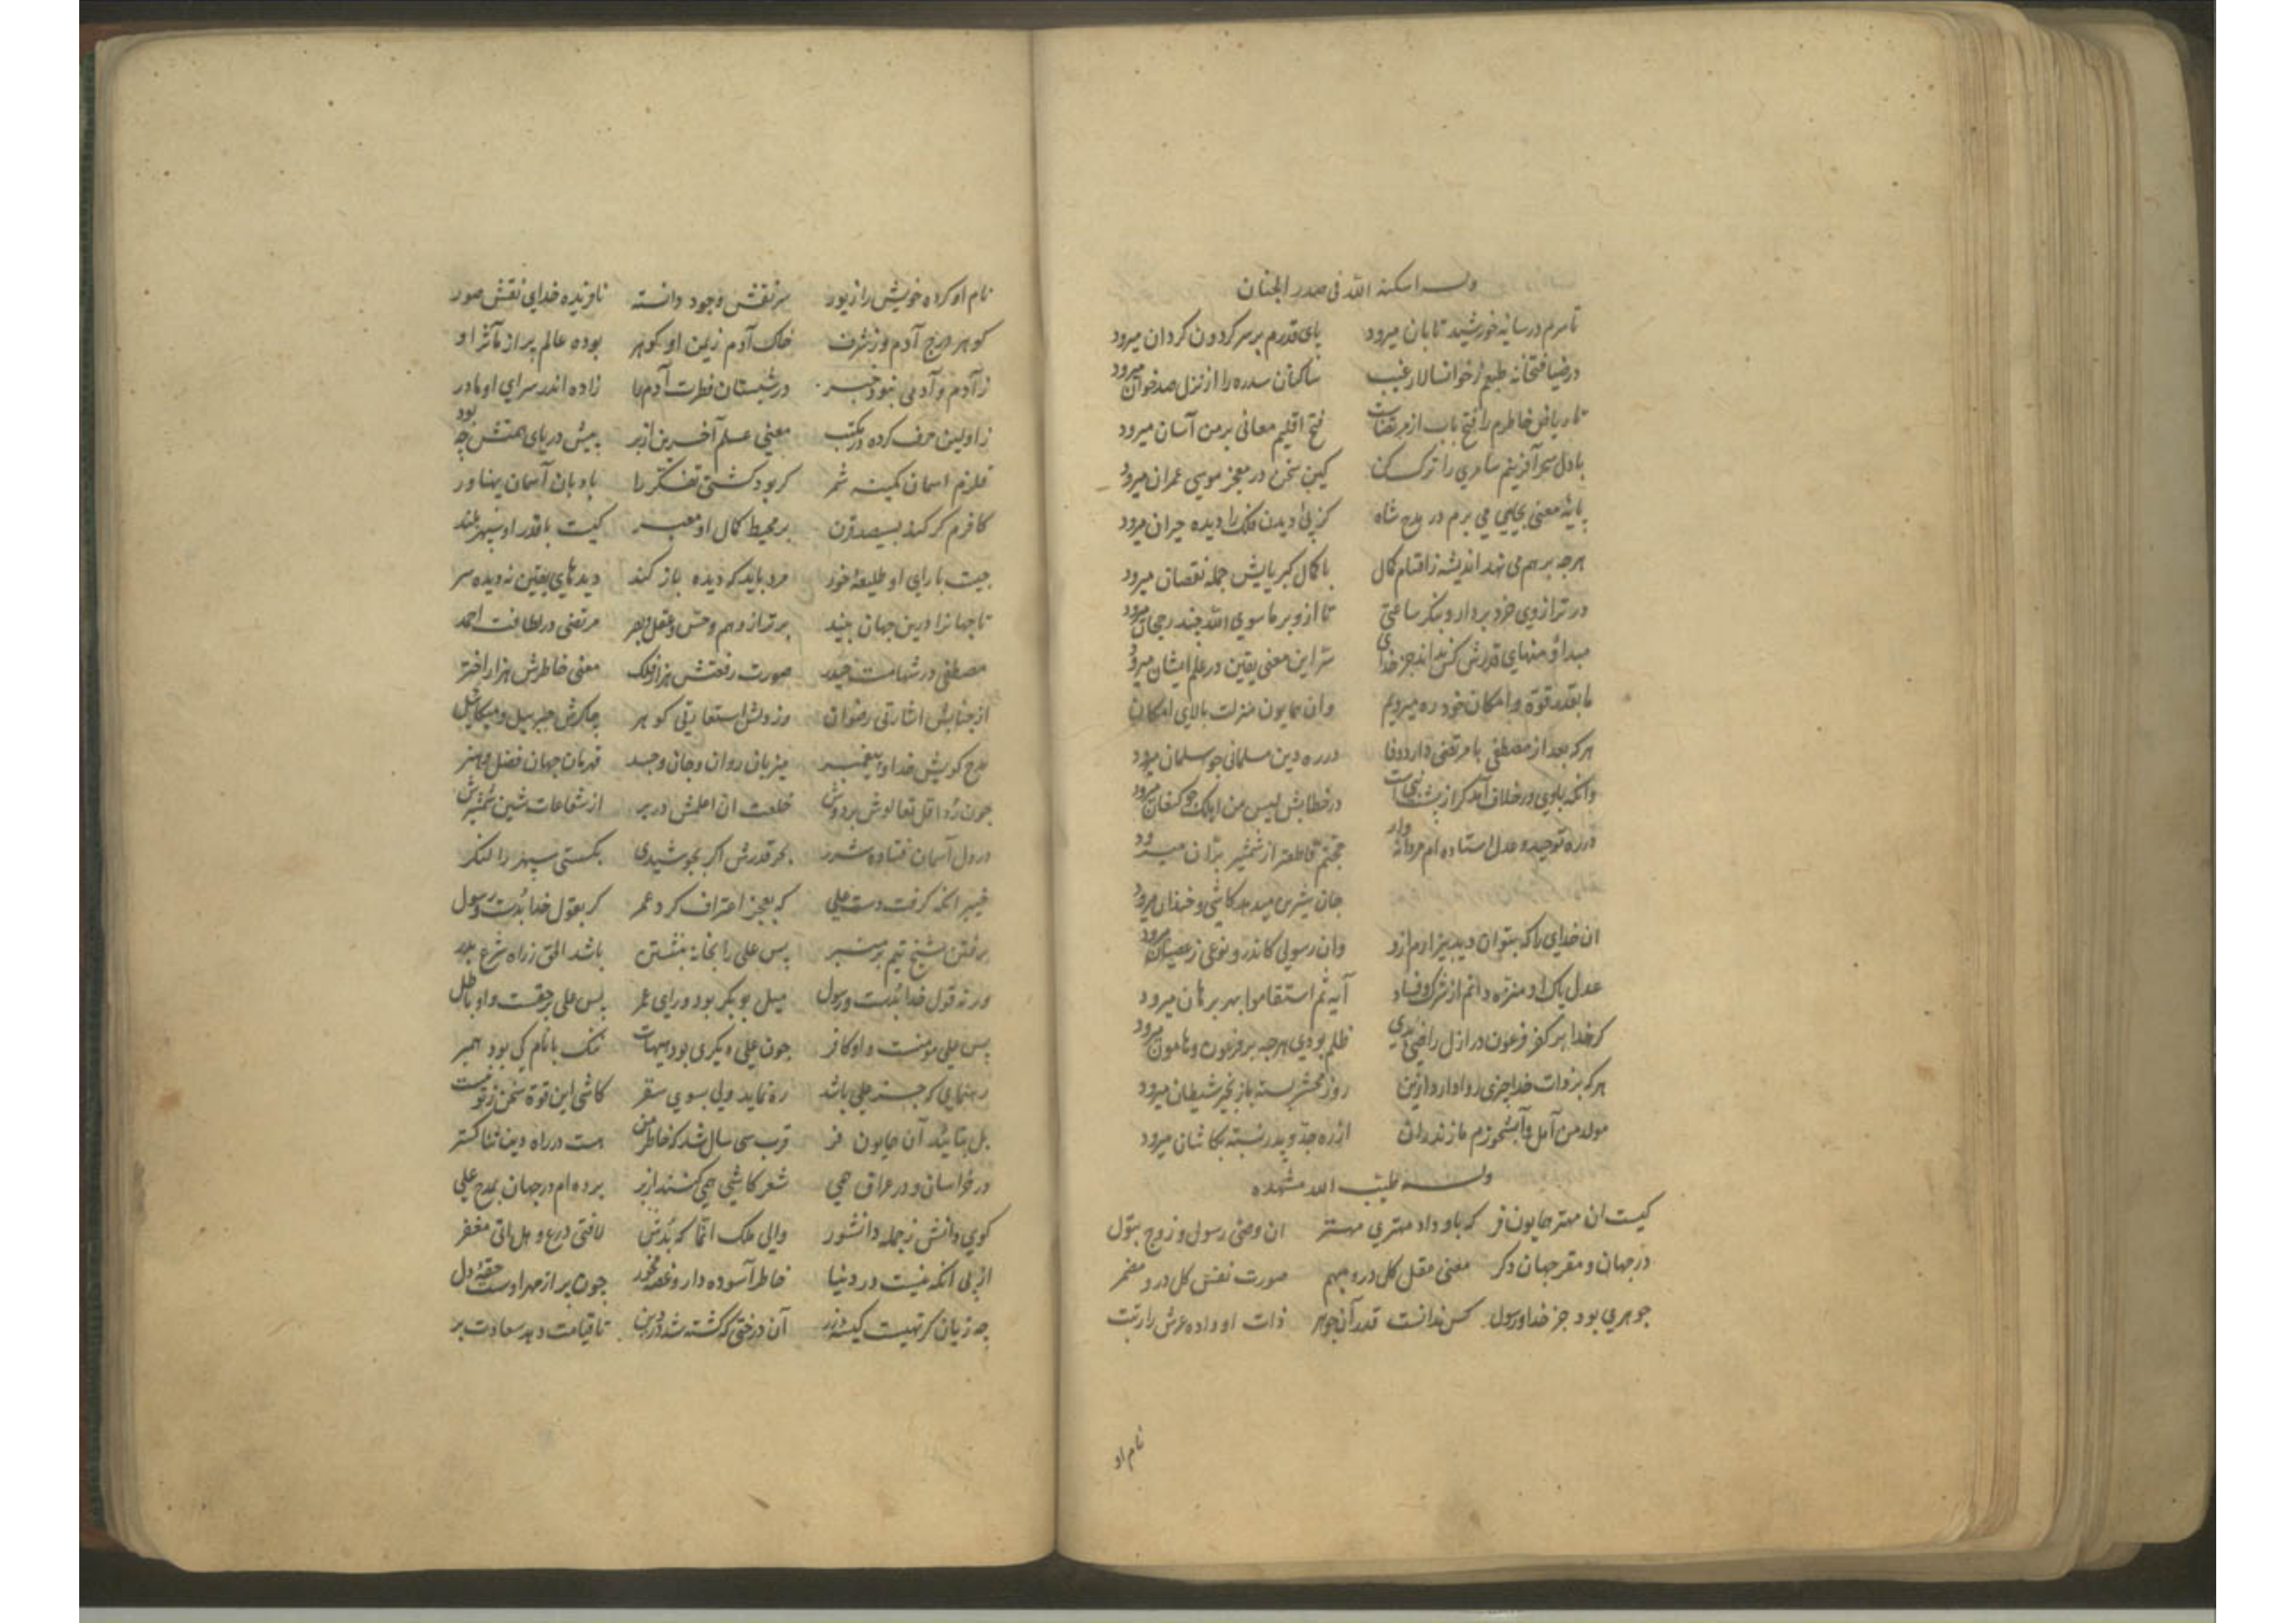 وله اسکنه الله فی صدر الجنان
تا سرم در سایه خورشید تابان میرود پای قدرم بر سر کردون کردان میرود
در ضیافتخانه طبعم ز خوانسالار غیب ساکنان سدره را از نزل صد خوان میرود
تا ریاض خاطرم را فتح باب از مرتضاست فتح اقلیم معانی بر من آسان میرود
با دل سحر آفرینم سامری را ترک کن کین سخن در معجز موسی عمران میرود
پایهٔ معنی بجایی می برم در مدح شاه کز پی او دیدن فلک را دیده حیران میرود
هرچه بر هم می نهد اندیشه ز اقسام کمال با کمال کبریایش جمله نقصان میرود
در ترازوی خرد بردار و بنکر ساعتی تا ازو بر ماسوی الله چند رجحان میرود
مبدا و منتهای قدرش کس نداند جز خدای سر این معنی یقین در علم ایشان میرود
ما بقدر قوة و امکان خود ره میرویم وان همایون منزلت بالای امکان
هرکه بعد از مصطفی با مرتضی دارد وفا در ره دین مسلمانی چو سلمان میرود
وانکه با وی در خلاف آمد کر از پشت نبی است در خطابش لیس من اهلک چو کنعان میرود
در ره توحید و عدل استاده ام مردانه وار حجتم قاطعتر از شمشیر بران میرود
جان شیرین میدهد کاشی و خندان میرود
ان خدای را که بتوان دید بیزارم ازو وان رسولی کاندرو نوعی ز عصیان میرود
عدل پاک او منزه دانم از شرک و فساد آیه ثم استقاموا بهر برهان میرود
کر خدا بر کفر فرعون در ازل راضی بدی ظلم بودی هرچه بر فرعون و هامان میرود
هرکه بر ذات خدا چیزی روا دارد ازین روز محشر بسته با زنجیر شیطان میرود
مولد من آمل و آبشخورم مازندران از ره جد و پدر نسبت بکاشان میرود
وله طیب الله مشهده
کیست ان مهتر همایون فر که باو داد مهتری مهتر ان وصی رسول و زوج بتول
در جهان و مفر جهان دکر معنی عقل کل درو مبهم صورت نفس کل درو مضمر
جوهری بود جز خدا و رسول کس ندانست قدر آن جوهر ذات او داده عرش را رتبت
نام او
نام او کرده خویش را زیور سر نقش وجود دانسته نافریده خدای نقش صور
کوهر درج آدم وز شرف خاک آدم زیمن او کوهر بوده عالم پر از مآثر او
ز آدم و آدمی نبود خبر در شبستان فطرت آدم را زاده اندر سرای او مادر
ز اولین حرف کرده در مکتب معنی علم آخرین از بر پیش دریای همتش چه بود
قلزم اسمان کمینه شمر کر بود کشتی تفکر را بادبان آسمان پهناور
کافرم کر کند بسیصد قرن بر محیط کمال او معبر کیست با قدر او سپهر بلند
چیست با رای او طلیعهٔ خور مرد باید که دیده باز کند دیدهای یقین نه دیده سر
تا جهانرا درین جهان بیند برتر از وهم و حس و عقل و بصر مرتضی در لطافت احمد
مصطفی در شهامت حیدر صورت رفعتش هزار فلک معنی خاطرش هزار اختر
از جنابش اشارتی رضوان وز دلش استعارتی کوهر چاکرش جبرییل و میکاییل
مدح کویش خدا و پیغمبر میزبان روان و جان وجسد قهرمان جهان فضل و هنر
چون ردا قل تعالوش بر دوش خلعت ان اعلمش در بر از شعاعات شین شمشیرش
در دل آسمان فتاده شرر بحر قدرش اکر بجوشیدی بکستی سپهر را لنکر
خیبر انکه کرفت دست علی که بعجز اعتراف کرد عمر کر بقول خدا بدست و رسول
رفتن شیخ تیم بر منبر پس علی را بخانه بنشستن باشد الحق ز راه شرع بدر
ور نه قول خدا بدست و رسول میل بوبکر بود و رای عمر پس علی بر حقست و او باطل
پس علی مومنست و او کافر چون علی دیکری بود هیهات سنک با نام کی بود همبر
رهنمایی که جز علی باشد ره نماید ولی بسوی سقر کاشی این قوة سخن ز تو نیست
بل بتایید آن همایون فر قرب سی سال شد که خاطر من هست در راه دین ثناکستر
در خراسان و در عراق همی شعر کاشی همی کنند از بر برده ام در جهان بمدح علی
کوی دانش ز جمله دانشور والی ملک انما که بدش لافتی درع و هل اتی مغفر
از پی انکه نیست در دنیا خاطر آسوده دار و غصه مخور چون پر از مهر اوست حقهٔ دل
چه زیان کر تهیست کیسه زر آن درختی که کشته شد در دین تا قیامت دهد سعادت بر